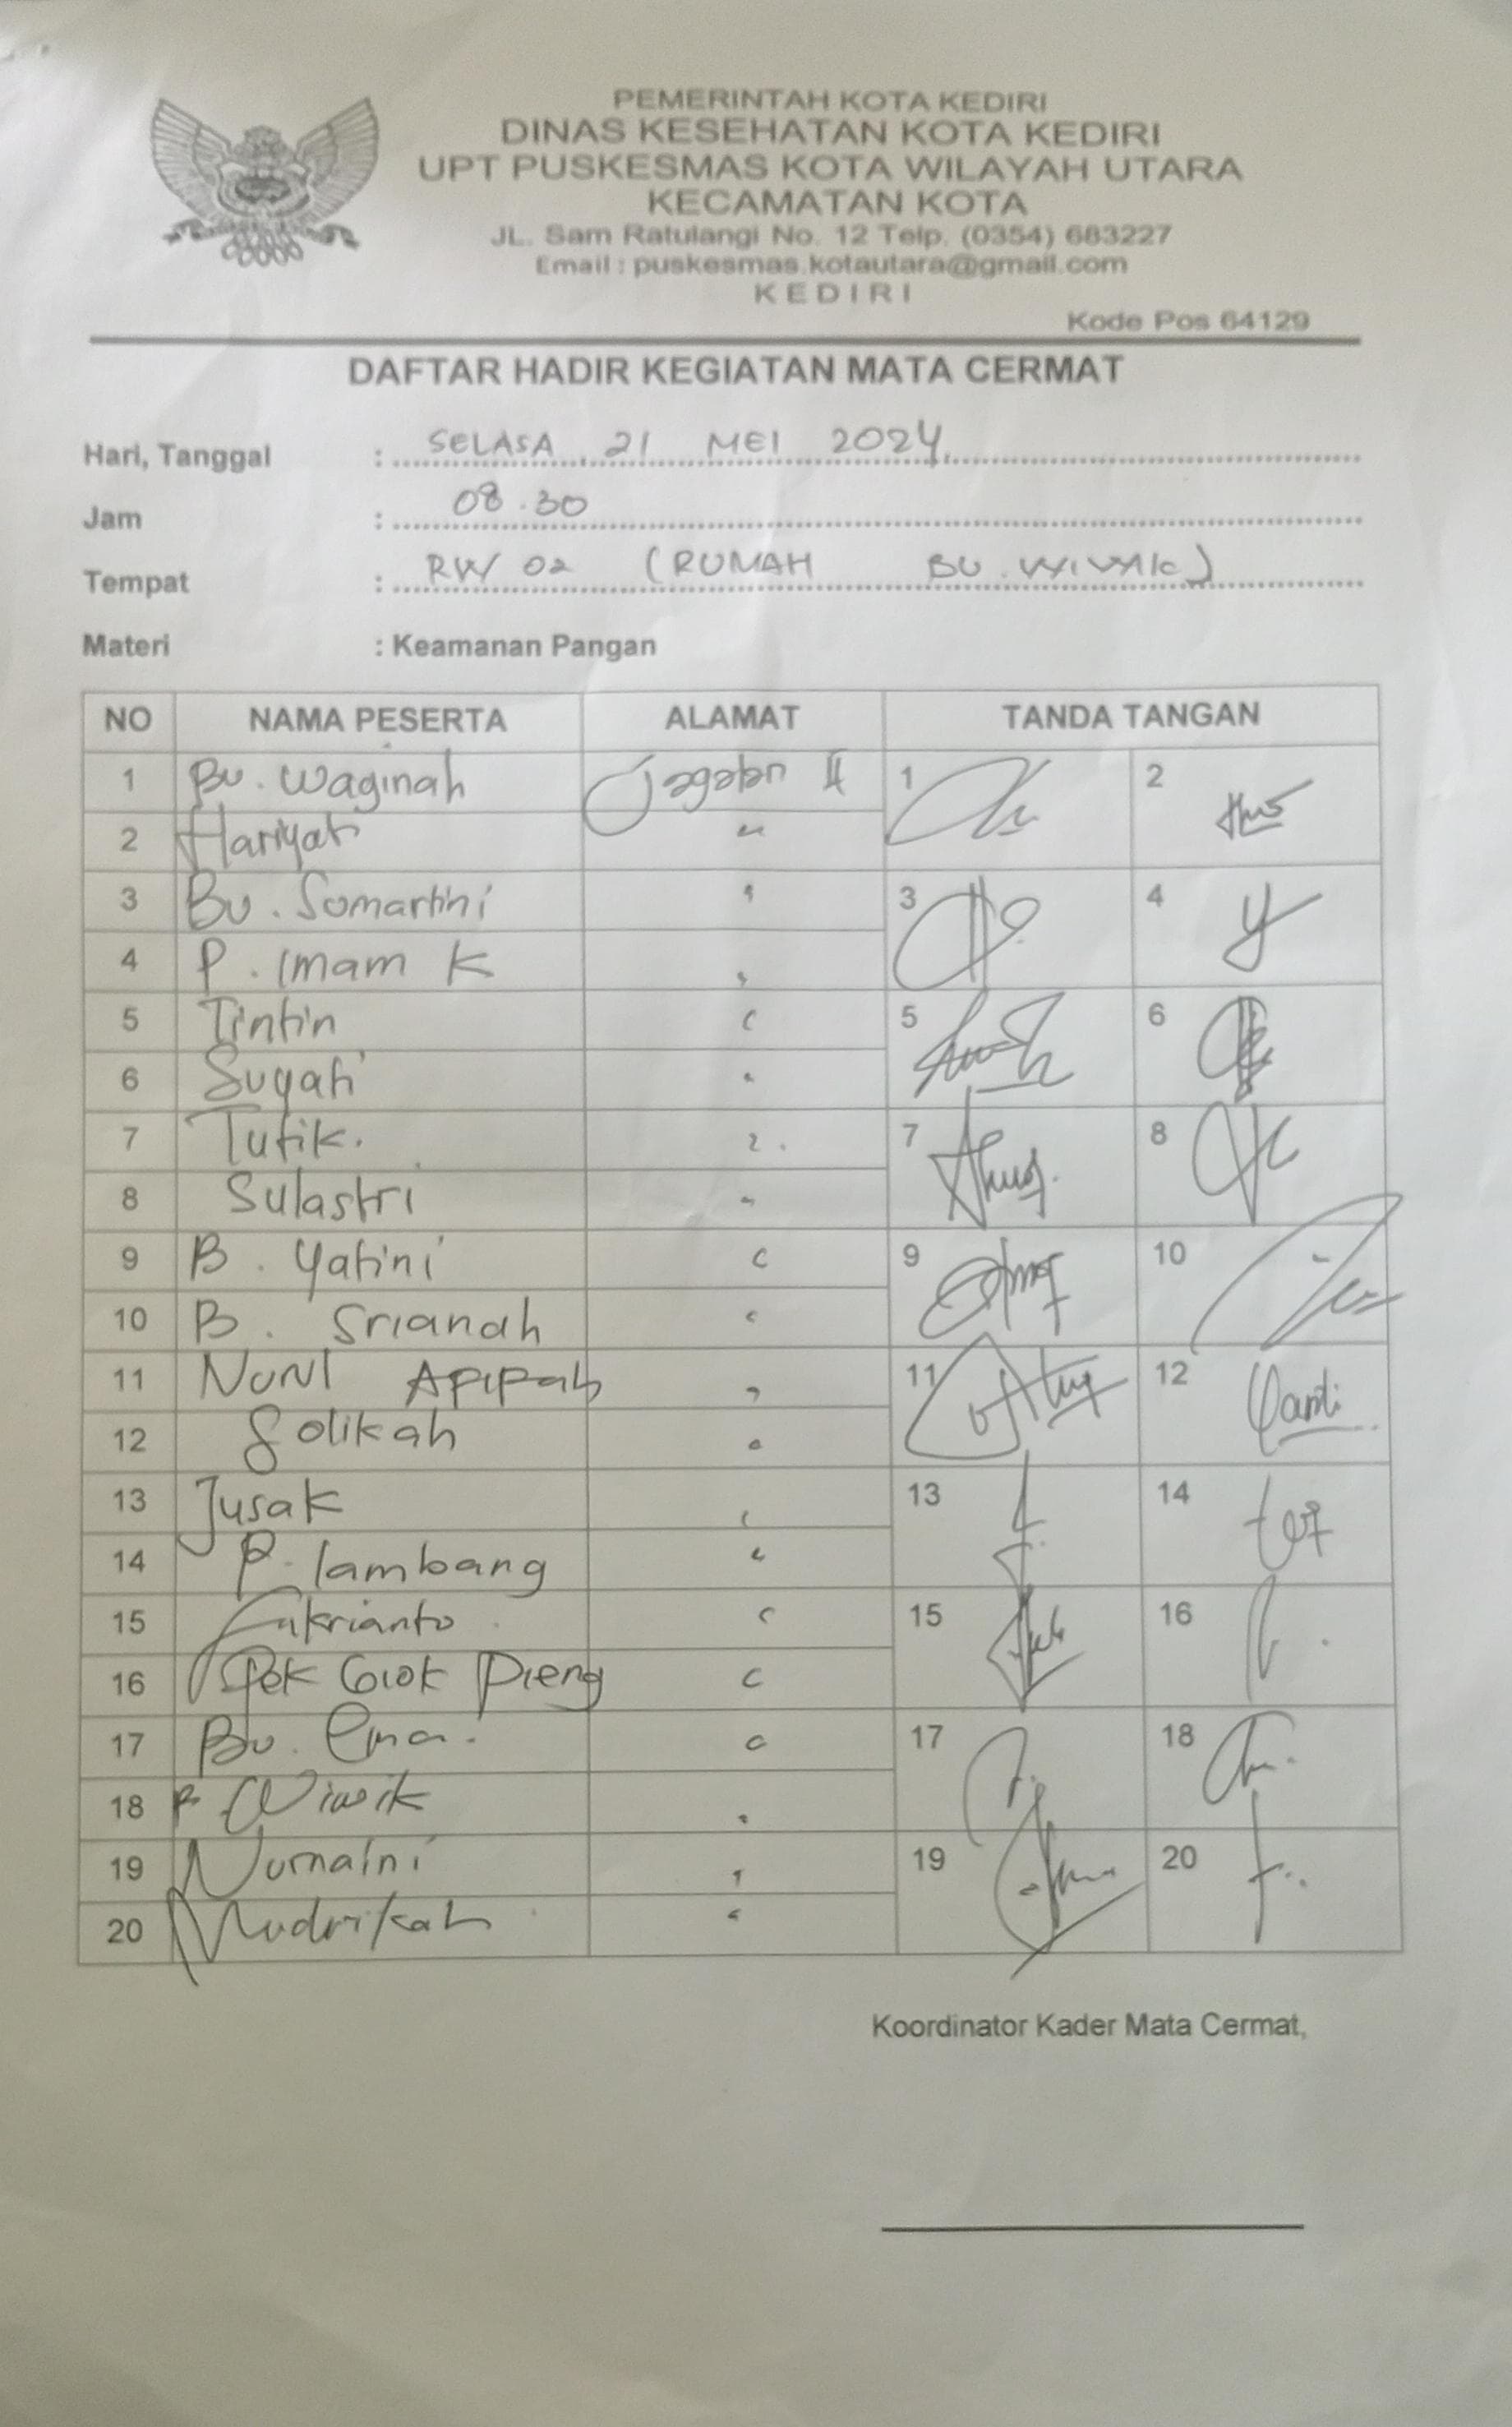 PEMERINTAH KOTA KEDIRI
DINAS KESEHATAN KOTA KEDIRI
UPT PUSKESMAS KOTA WILAYAH UTARA
KECAMATAN KOTA
JL. Sam Ratulangi No. 12 Telp. (0354) 683227
Email : puskesmas.kotautara@gmail.com
KEDIRI
Kode Pos 64129
DAFTAR HADIR KEGIATAN MATA CERMAT
Hari, Tanggal : SELASA, 21 MEI 2024
Jam : 08.30
Tempat : RW 02 (RUMAH BU. WIWIK)
Materi : Keamanan Pangan
NO NAMA PESERTA ALAMAT TANDA TANGAN
1 Bu. Waginah II 1 2
2 Hariyati "
3 Bu. Sumartini " 3 4
4 P. Imam K "
5 Tintin " 5 6
6 Suyati "
7 Tutik. " 7 8
8 Sulastri "
9 B. Yatini " 9 10
10 B. Srianah "
11 Nurul Apipah " 11 12
12 Solikah "
13 Jusak " 13 14
14 P. lambang "
15 "  15 16
16 Pak "
17 Bu. Ema. " 17 18
18 Wiwik "
19 Nurnaini " 19 20
20 Mudrikah "
Koordinator Kader Mata Cermat,